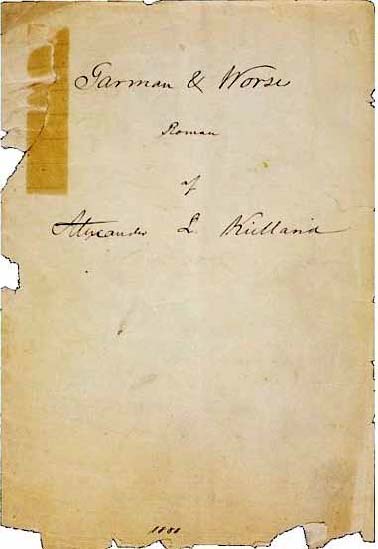 Garman & Worse
Roman
af
Alexander L. Kielland